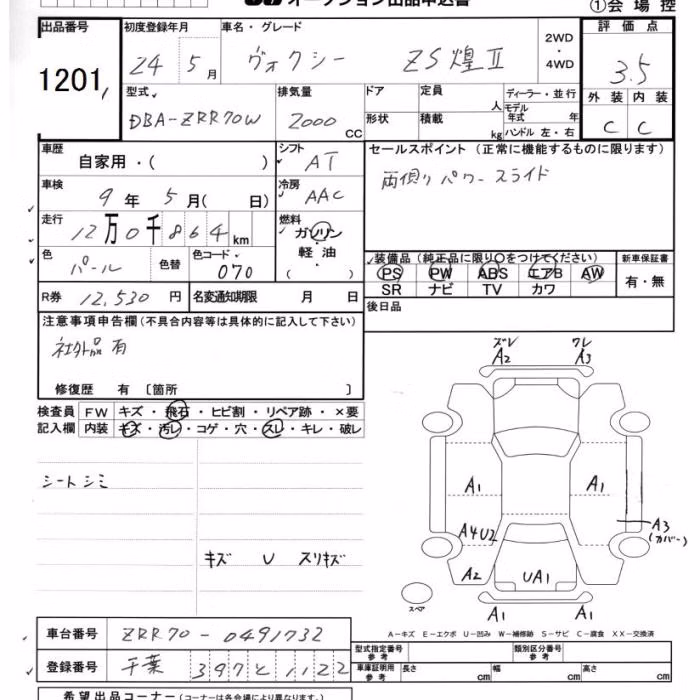 オークション出品申込書
①会場控
出品番号
1201
初度登録年月
24年 5月
車名・グレード
ヴォクシー ZS煌Ⅱ
2WD
・
4WD
評価点
3.5
外装 内装
C C
型式
DBA-ZRR70W
排気量
2000 CC
ドア
形状
定員 人
積載 kg
ディーラー・並行
モデル年式 年
ハンドル 左・右
車歴
自家用・( )
シフト
AT
セールスポイント (正常に機能するものに限ります)
両側パワースライド
車検
9年 5月( 日)
冷房
AAC
走行
12万0千864km
燃料
ガソリン
・
軽油
・
( )
色
パール
色替
色コード
070
装備品 (純正品に限り○をつけてください)
PS PW ABS エアB AW
SR ナビ TV カワ
新車保証書
有・無
R券 12,530円
名変通知期限 月 日
後日品
注意事項申告欄 (不具合内容等は具体的に記入して下さい)
社外品有
修復歴 有 〔箇所 〕
検査員
記入欄
FW キズ・飛石・ヒビ割・リペア跡・×要
内装 キズ・汚レ・コゲ・穴・スレ・キレ・破レ
シートシミ
キズ U スリキズ
ズレ ワレ
A2 A3
A1 A1
A4U2
A3
(カバー)
A2 UA1
スペア
A1 A1
A-キズ E-エクボ U-凹み W-補修跡 S-サビ C-腐食 XX-交換済
車台番号
ZRR70-0491732
登録番号
千葉 397と1122
型式指定番号
参考
類別区分番号
参考
車庫証明用
参考
長さ cm 幅 cm 高さ cm
希望出品コーナー (コーナーは各会場により異なります)